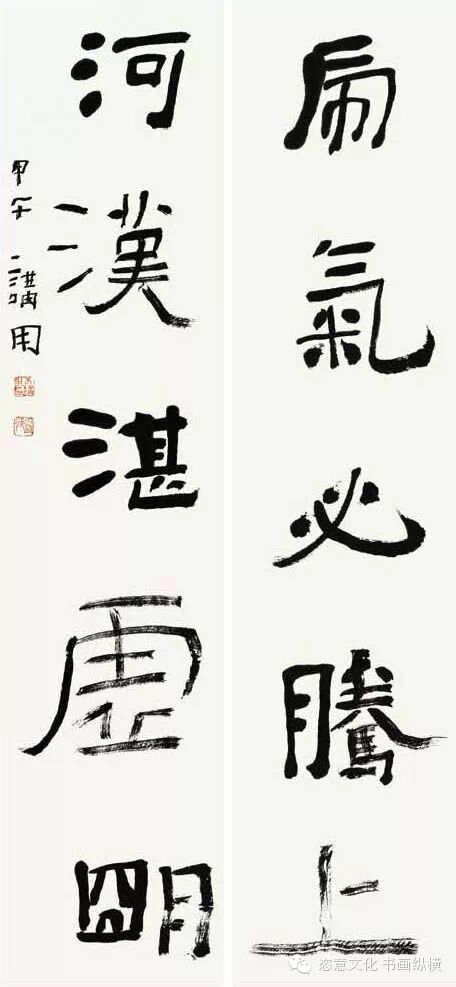 虎氣必騰上
河漢湛虛朙
甲午
恣意文化 书画纵横